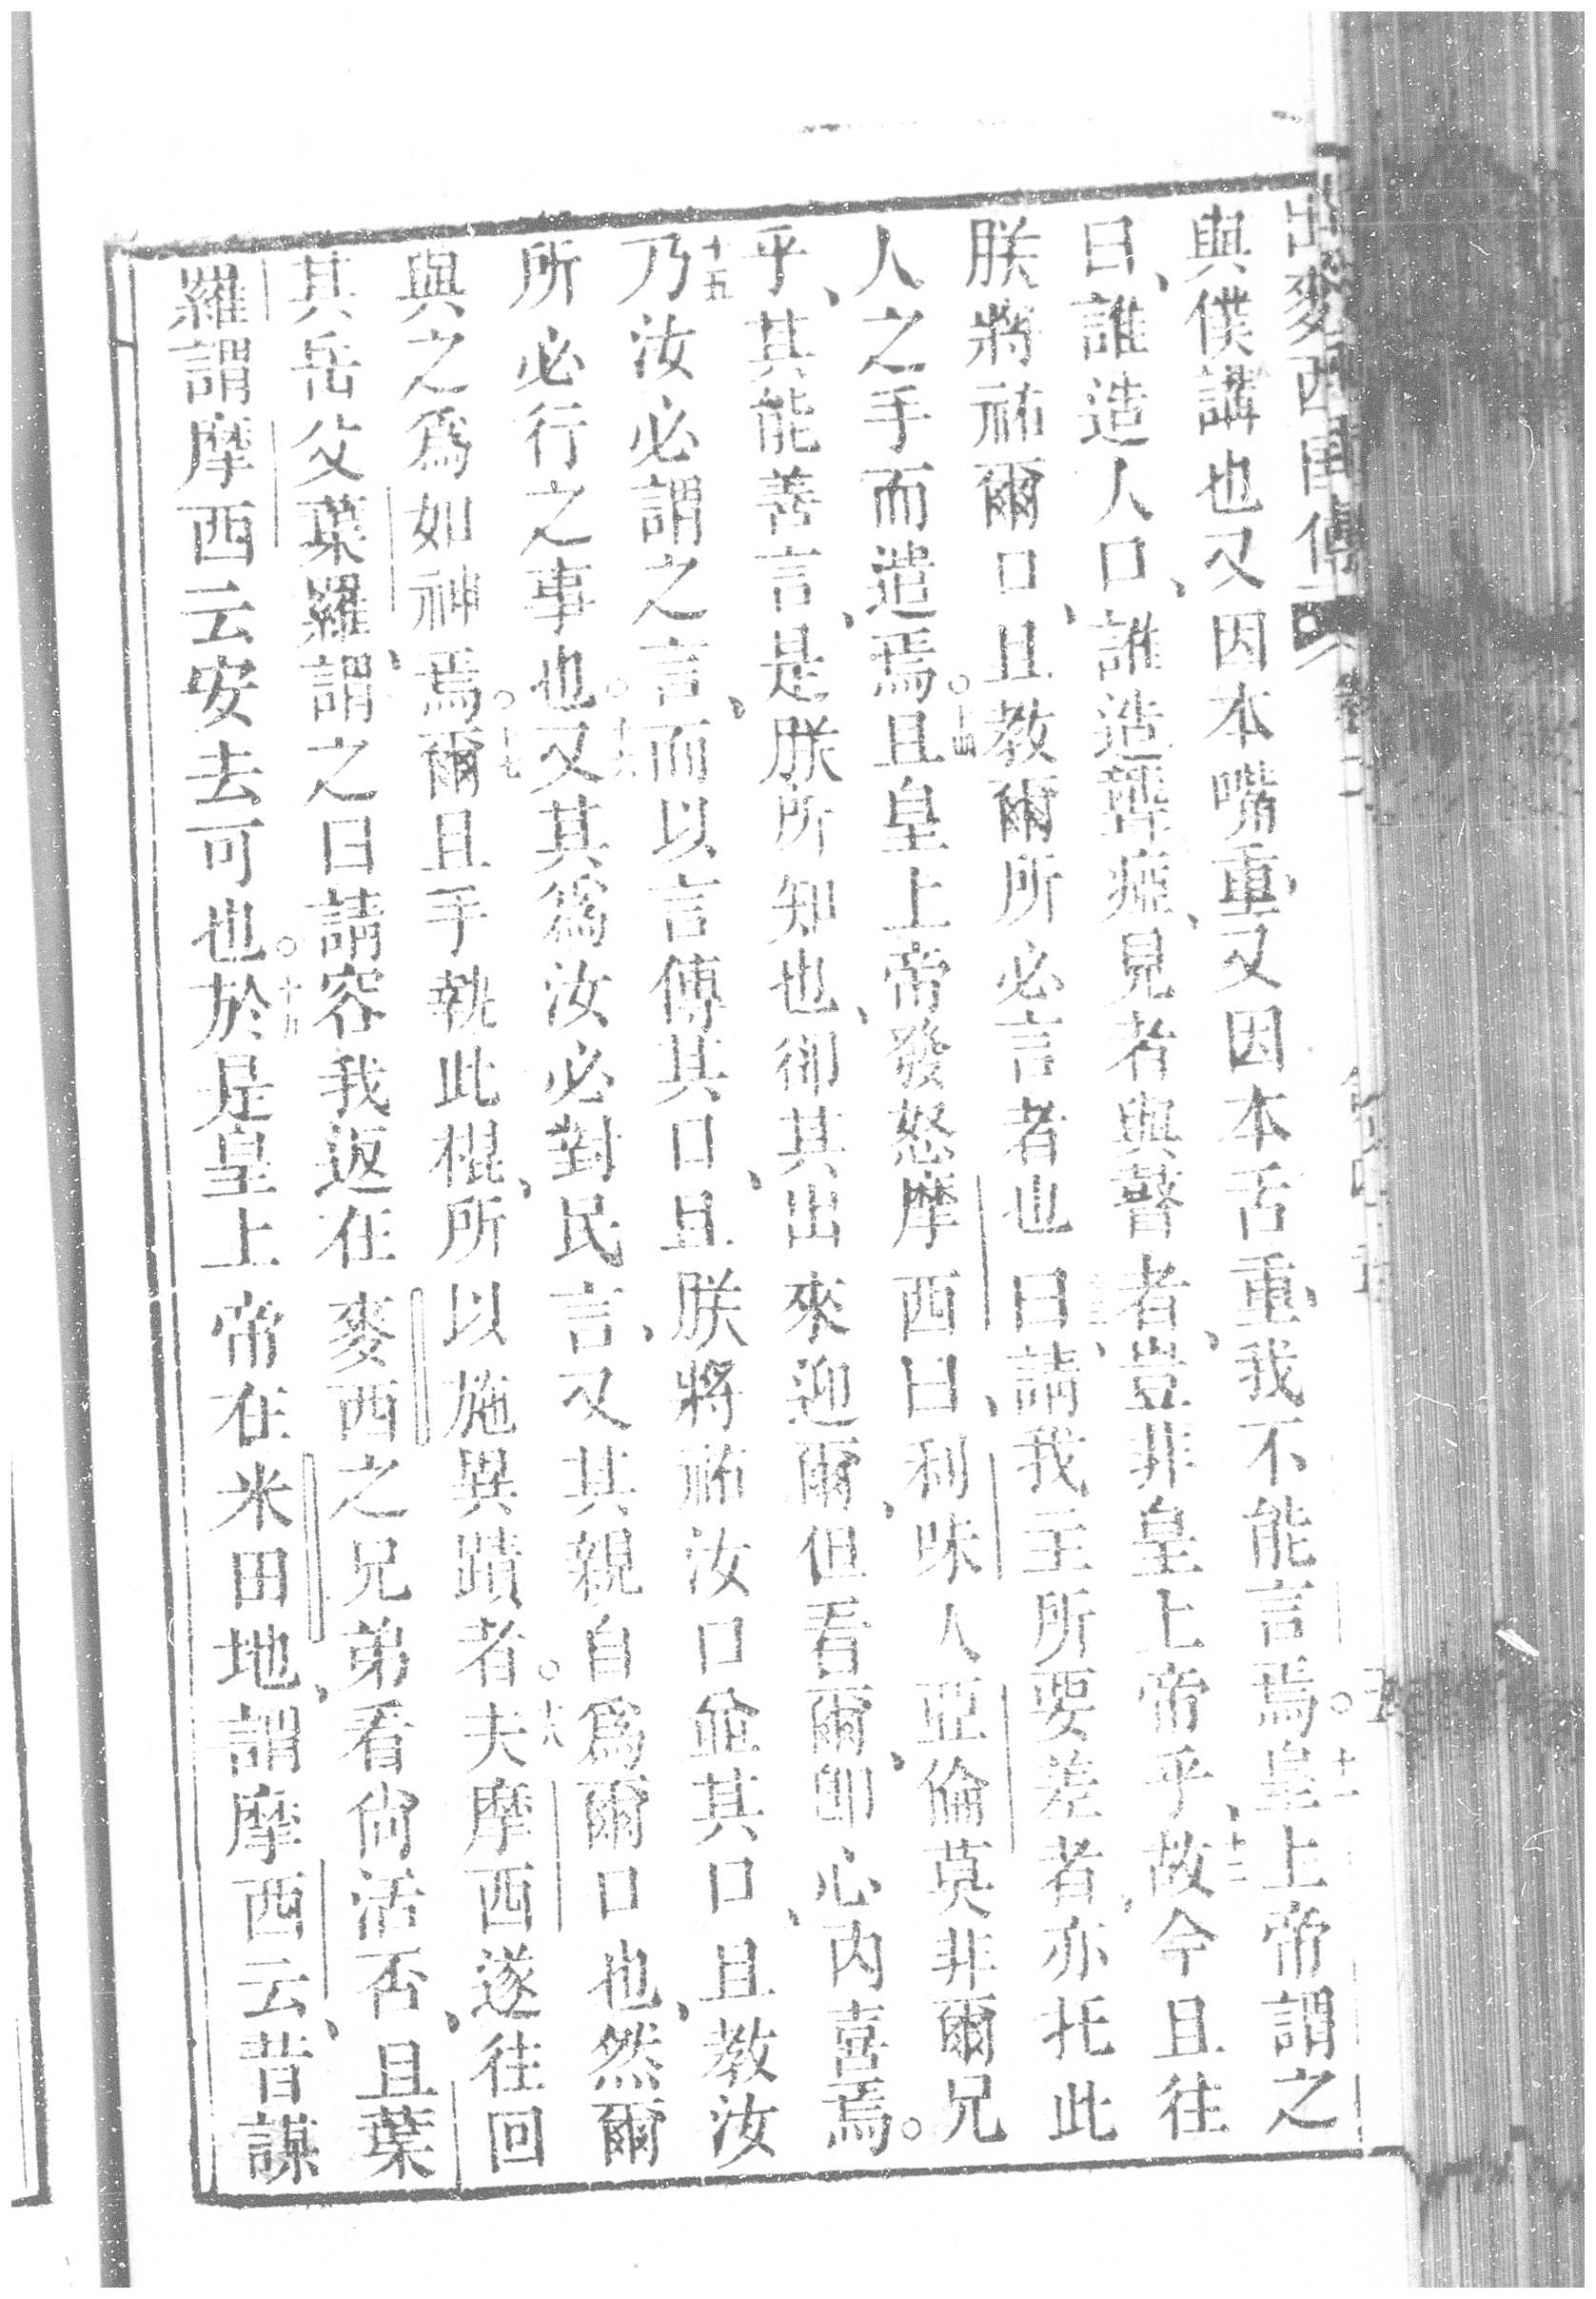 出麥西國傳
與僕講也又因本嘴重、又因本舌重、我不能言焉。十一皇上帝謂之
曰、誰造人口、誰造聾瘂、見者與瞽者、豈非皇上帝乎、十二故今且往
朕將祐爾口、且教爾所必言者也曰、請我主所要差者、亦托此
人之手而遣焉。十四且皇上帝發怒摩西曰、利味人亞倫莫非爾兄
乎、其能善言、是朕所知也、御其出來迎爾、但看爾、卽心內喜焉。
十五乃汝必謂之言、而以言傳其口、且朕將祐汝口並其口且教汝
所必行之事也。十六又其爲汝必對民言、又其親自爲爾口也、然爾
與之爲如神焉。十七爾且手執此棍、所以施異蹟者。十八夫摩西遂往回
其岳父葉羅、謂之曰請容我返在麥西之兄弟看尙活否、且葉
羅謂摩西云安去可也。十九於是皇上帝在米田地、謂摩西云、昔謀